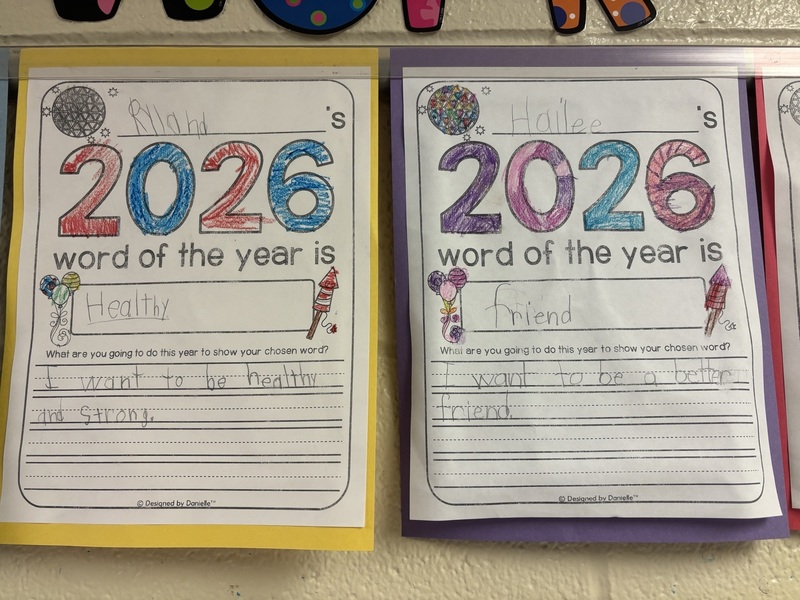 Ryland 's
2026
word of the year is
Healthy
What are you going to do this year to show your chosen word?
I want to be healthy
and strong.
© Designed by Danielle™
Hailee 's
2026
word of the year is
friend
What are you going to do this year to show your chosen word?
I want to be a better
friend.
© Designed by Danielle™